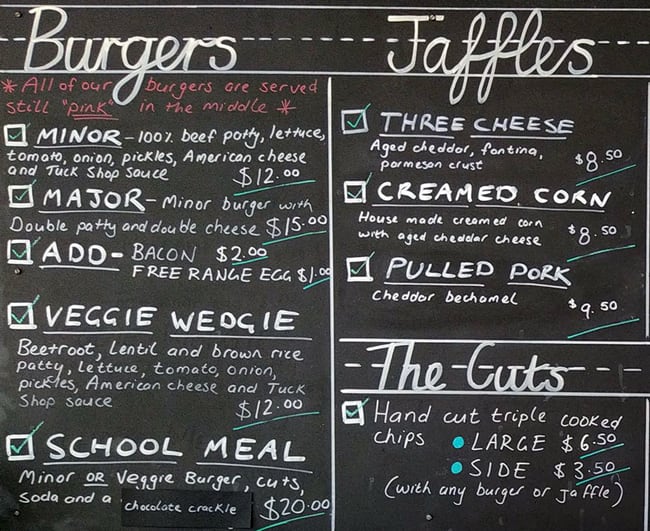 Burgers
* All of our burgers are served
still "pink" in the middle *
MINOR - 100% beef patty, lettuce,
tomato, onion, pickles, American cheese
and Tuck Shop sauce $12.00
MAJOR - Minor burger with
Double patty and double cheese $15.00
ADD - BACON $2.00
FREE RANGE EGG $1.00
VEGGIE WEDGIE
Beetroot, Lentil and brown rice
patty, lettuce, tomato, onion,
pickles, American cheese and Tuck
Shop sauce
$12.00
SCHOOL MEAL
Minor OR Veggie Burger, cuts,
Soda and a chocolate crackle $20.00
Jaffles
THREE CHEESE
Aged cheddar, fontina,
parmesan crust $8.50
CREAMED CORN
House made creamed corn
with aged cheddar cheese $8.50
PULLED PORK
Cheddar bechamel $9.50
The Cuts
Hand cut triple cooked
chips • LARGE $6.50
• SIDE $3.50
(with any burger or Jaffle)